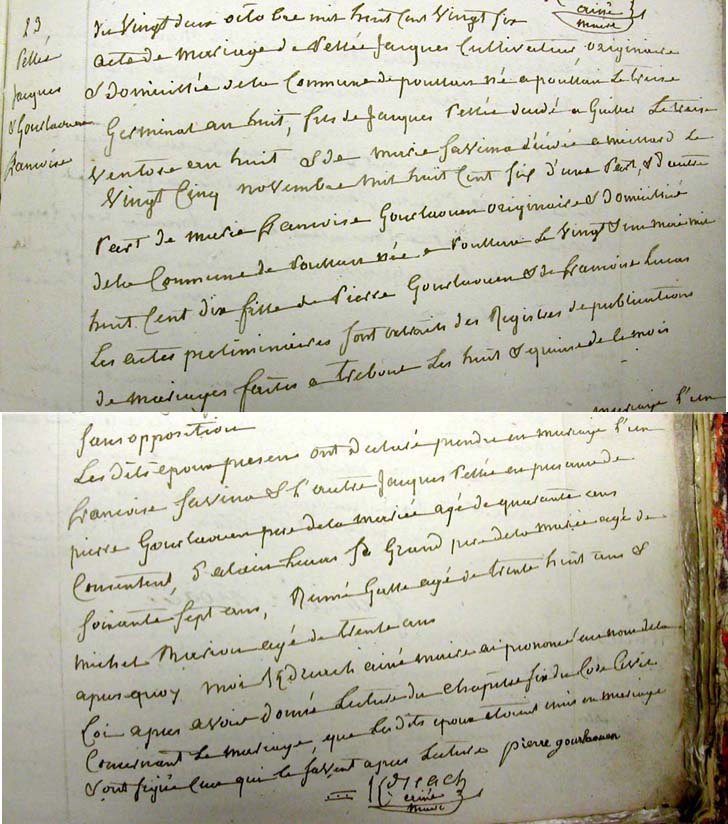 ainé
maire
23
Pellée
Jacques
& Gourlaouen
francoise
du Vingt deux octobre mil huit Cent Vingt six
acte de mariage de Pellée Jacques Cultivateur originaire
& domiciliée de la Commune de poullan né a poullan Le treise
Germinal an huit, fils de Jacques Pellée decédé a Le treise
Ventose an huit & de marie Savina décédée a Le
Vingt Cinq novembre mil huit Cent six d'une Part, & d'autre
Part de marie francoise Gourlaouen originaire & domiciliée
de la Commune de Poullan née a Poullan Le Vingt & un mai mil
huit Cent dix fille de Pierre Gourlaouen & de francoise Lucas
Les actes preliminaires sont extraits des Registres de publications
de mariages faites a treboul Les huit & quinse de ce mois
sans opposition
Les dits epoux presens ont declaré prendre en mariage L'un
francoise Savina & L'autre Jacques Pellée en presence de
pierre Gourlaouen pere de la mariée agé de quarante ans
Consentent, d'alain Lucas Grand pere de la mariée agé de
soixante sept ans, agé de trente huit ans &
michel agé de trente ans
apres quoy moi ainé maire ai prononcé au nom de la
Loi apres avoir donné Lecture du Chapitre six du Code Civil
Concernant Le mariage, que Les dits epoux etoient unis en mariage
& ont signé Ceux qui le savent apres Lecture pierre gourlaouen
ainé
maire